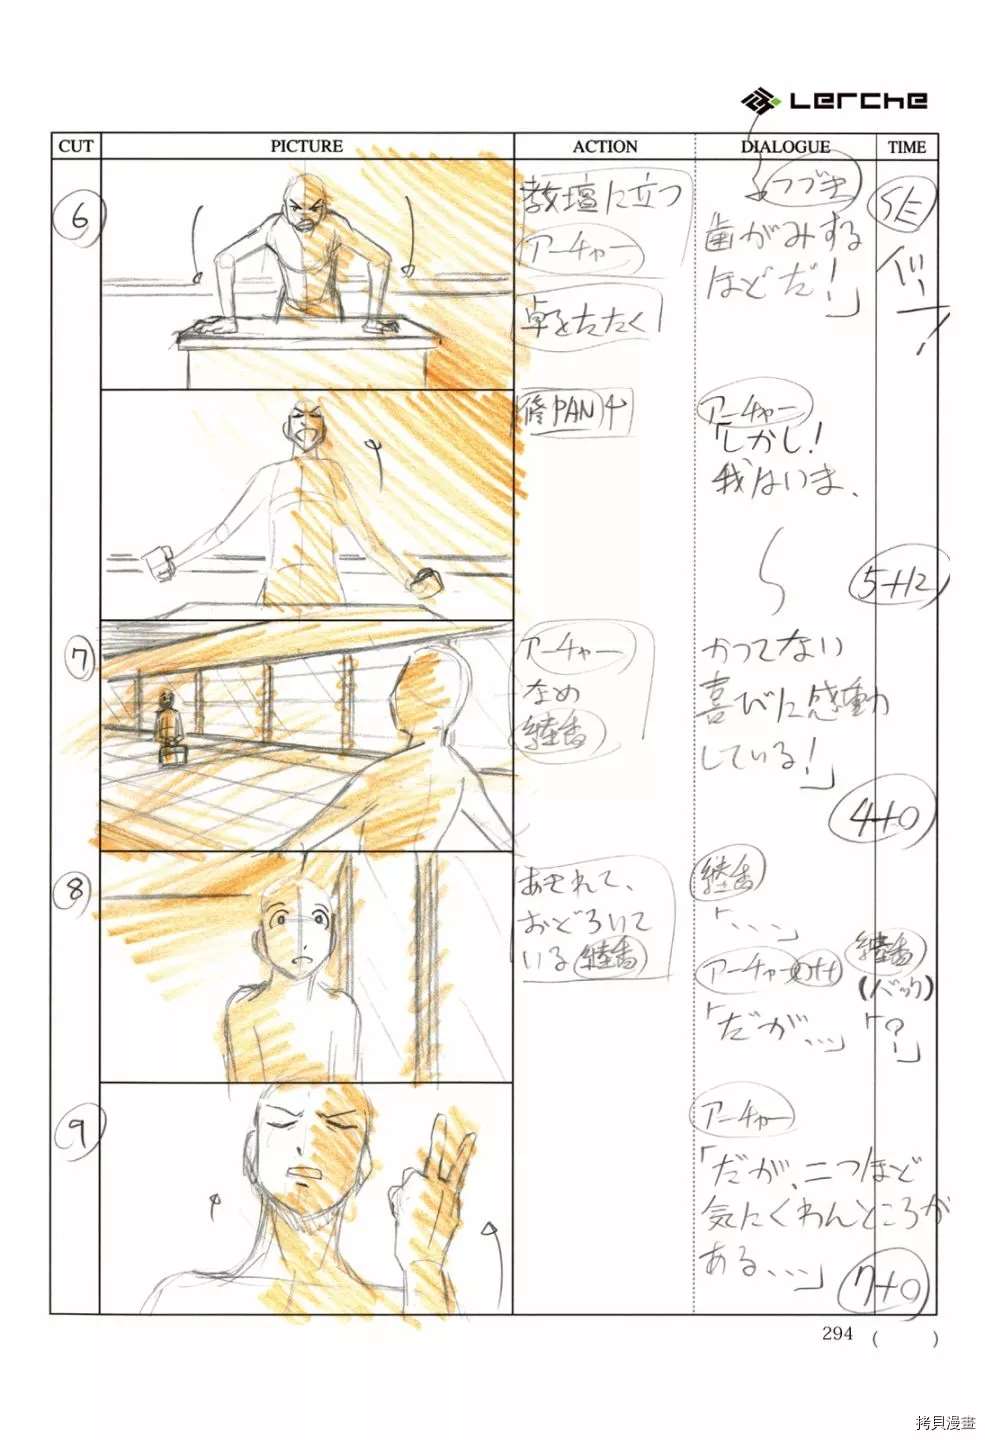 Lerche
CUT PICTURE ACTION DIALOGUE TIME
6
教壇に立つ
アーチャー
卓をたたく
つづき
歯がみする
ほどだ！」
SE
バーン
修PAN
アーチャー
「しかし！
我はいま、
5+12
7
アーチャー
なめ
綾香
かつてない
喜びに感動
している！」
4+0
8
あきれて、
おどろいて
いる
「、、、」
アーチャーOff
「だが、、、」
(バック)
「？」
9
アーチャー
「だが、二つほど
気にくわんところが
ある、、、」
7+0
294 ( )
拷貝漫畫